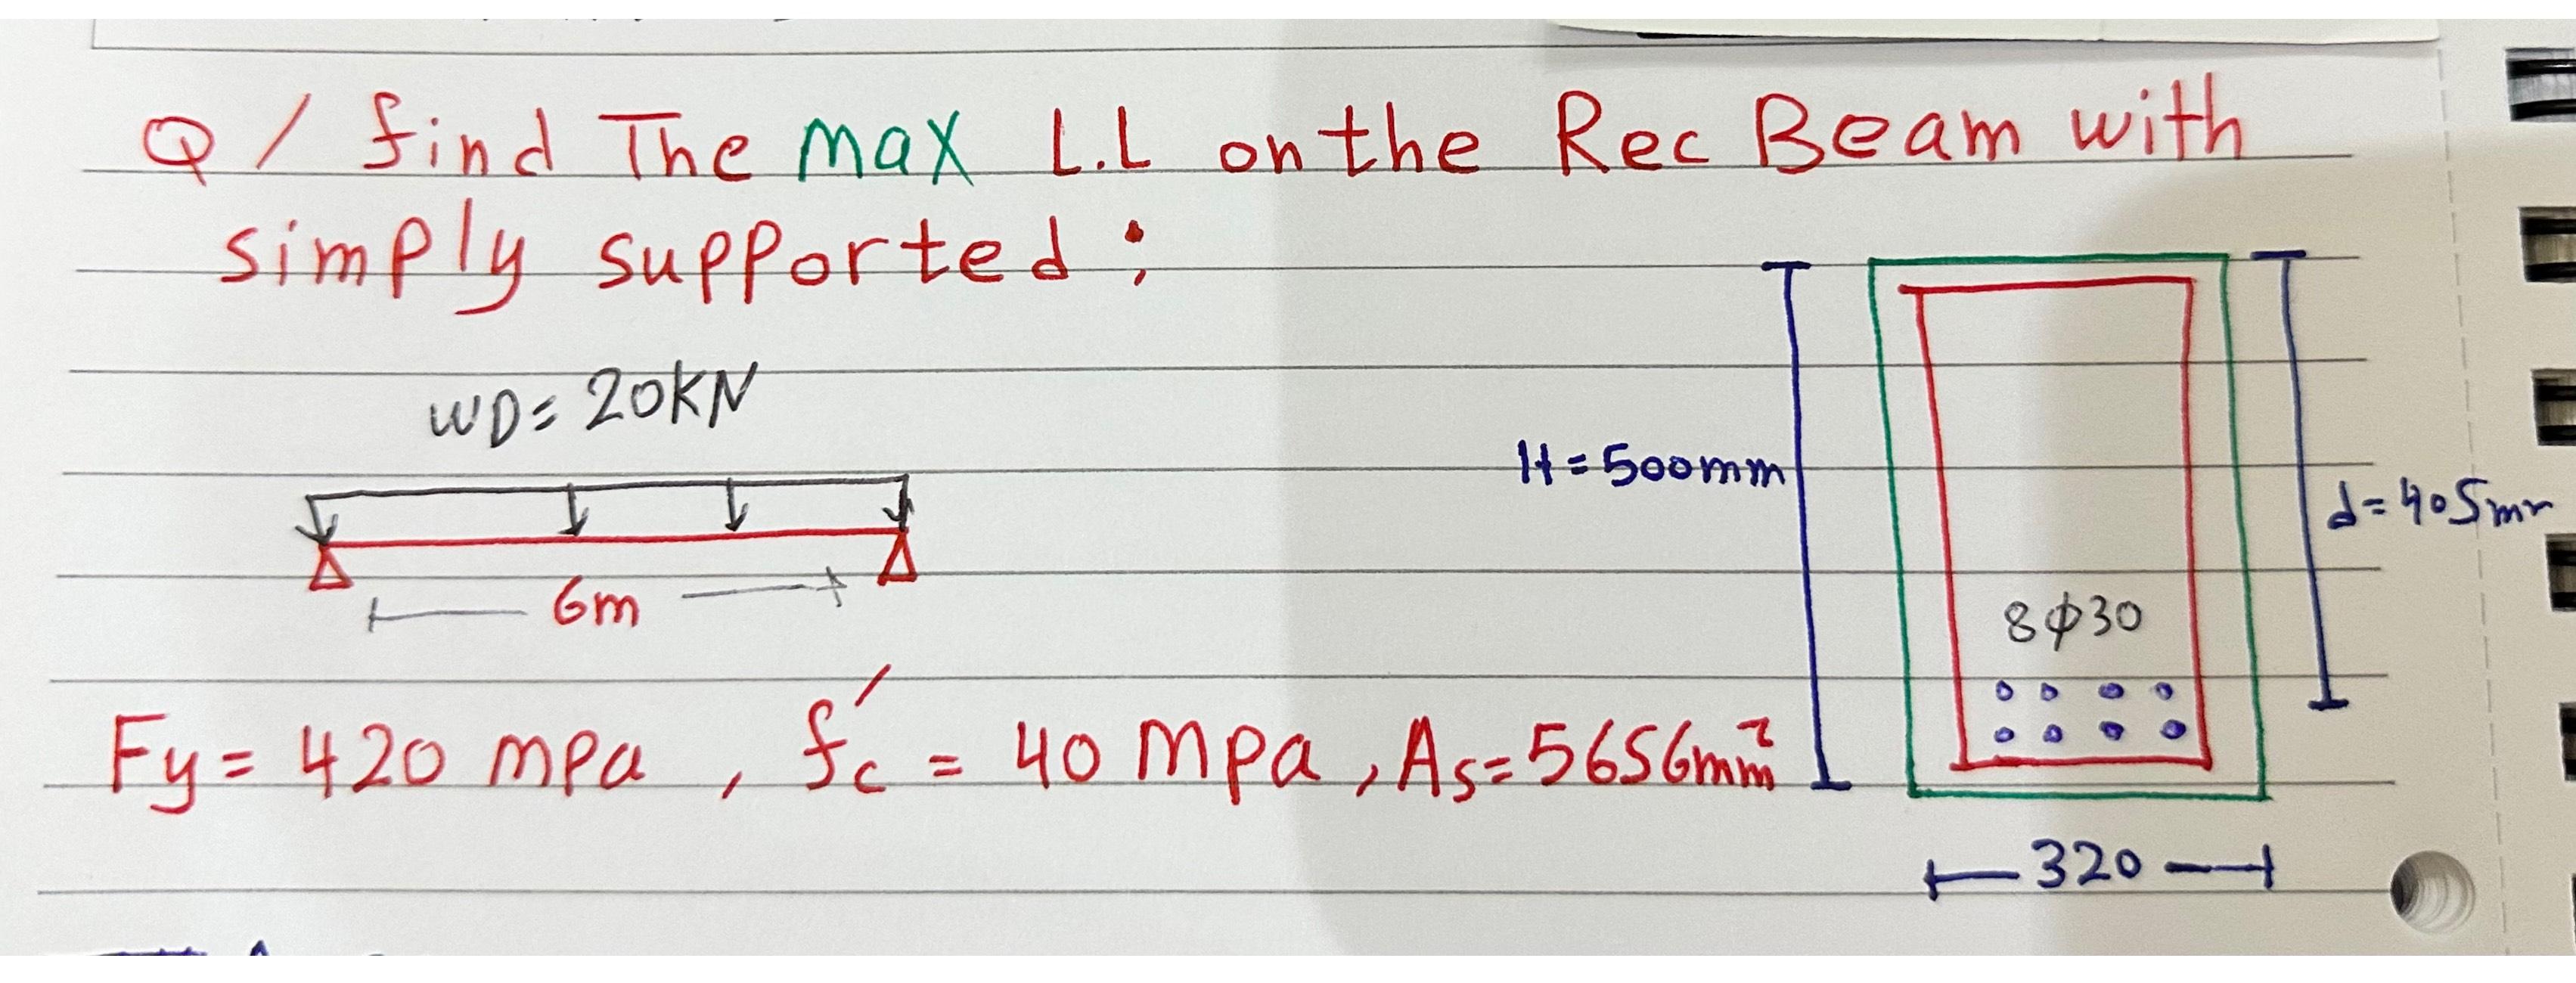 Q / find The max L.L on the Rec Beam with
simply supported :
WD= 20KN
6m
H=500mm
d=405mm
8ϕ30
Fy= 420 mpa , f'c = 40 Mpa , As=5656mm²
320